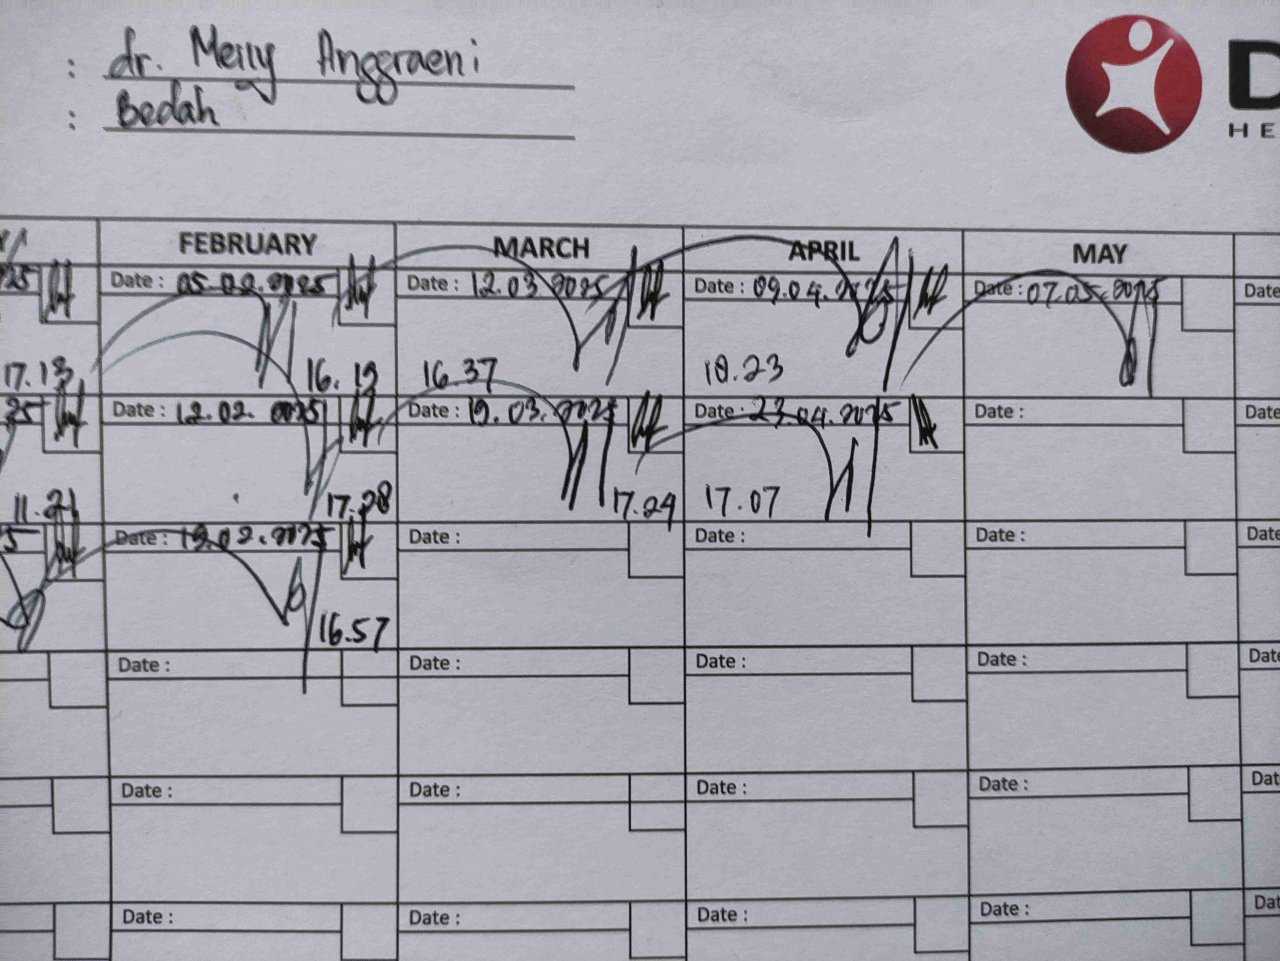 : dr. Meily Anggraeni
: Bedah
D
HE
FEBRUARY MARCH APRIL MAY
25 Date : 05.02.2025 Date : 12.03.2025 Date : 09.04.2025 Date : 07.05.2025 Date
17.13 16.19 16.37 18.23
25 Date : 12.02.2025 Date : 19.03.2025 Date : 23.04.2025 Date : Date
11.21 17.28 17.24 17.07
5 Date : 19.02.2025 Date : Date : Date : Date
16.57
Date : Date : Date : Date : Date
Date : Date : Date : Date : Dat
Date : Date : Date : Date : Dat